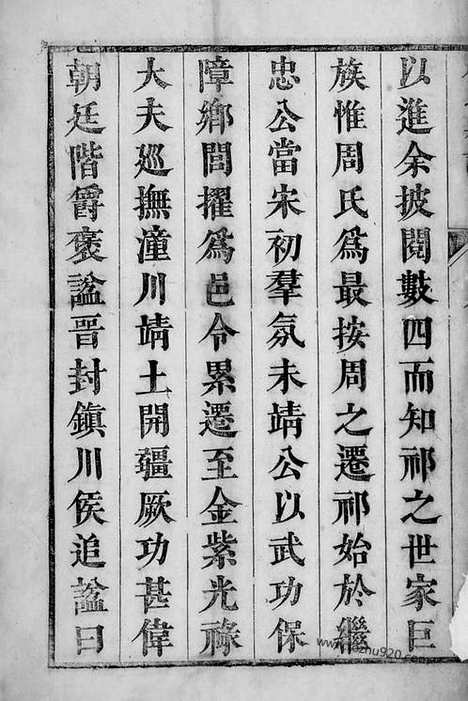 以進余披閱數四而知祁之世家巨
族惟周氏為最按周之遷祁始於繼
忠公當宋初羣氛未靖公以武功保
障鄉閭擢為邑令累遷至金紫光祿
大夫廵撫潼川靖土開疆厥功甚偉
朝廷階爵褒諡晋封鎮川侯追諡曰